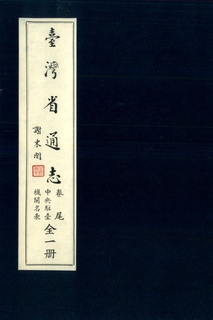 臺灣省通志
謝東閔
卷尾
中央駐臺
機關名錄
全一册